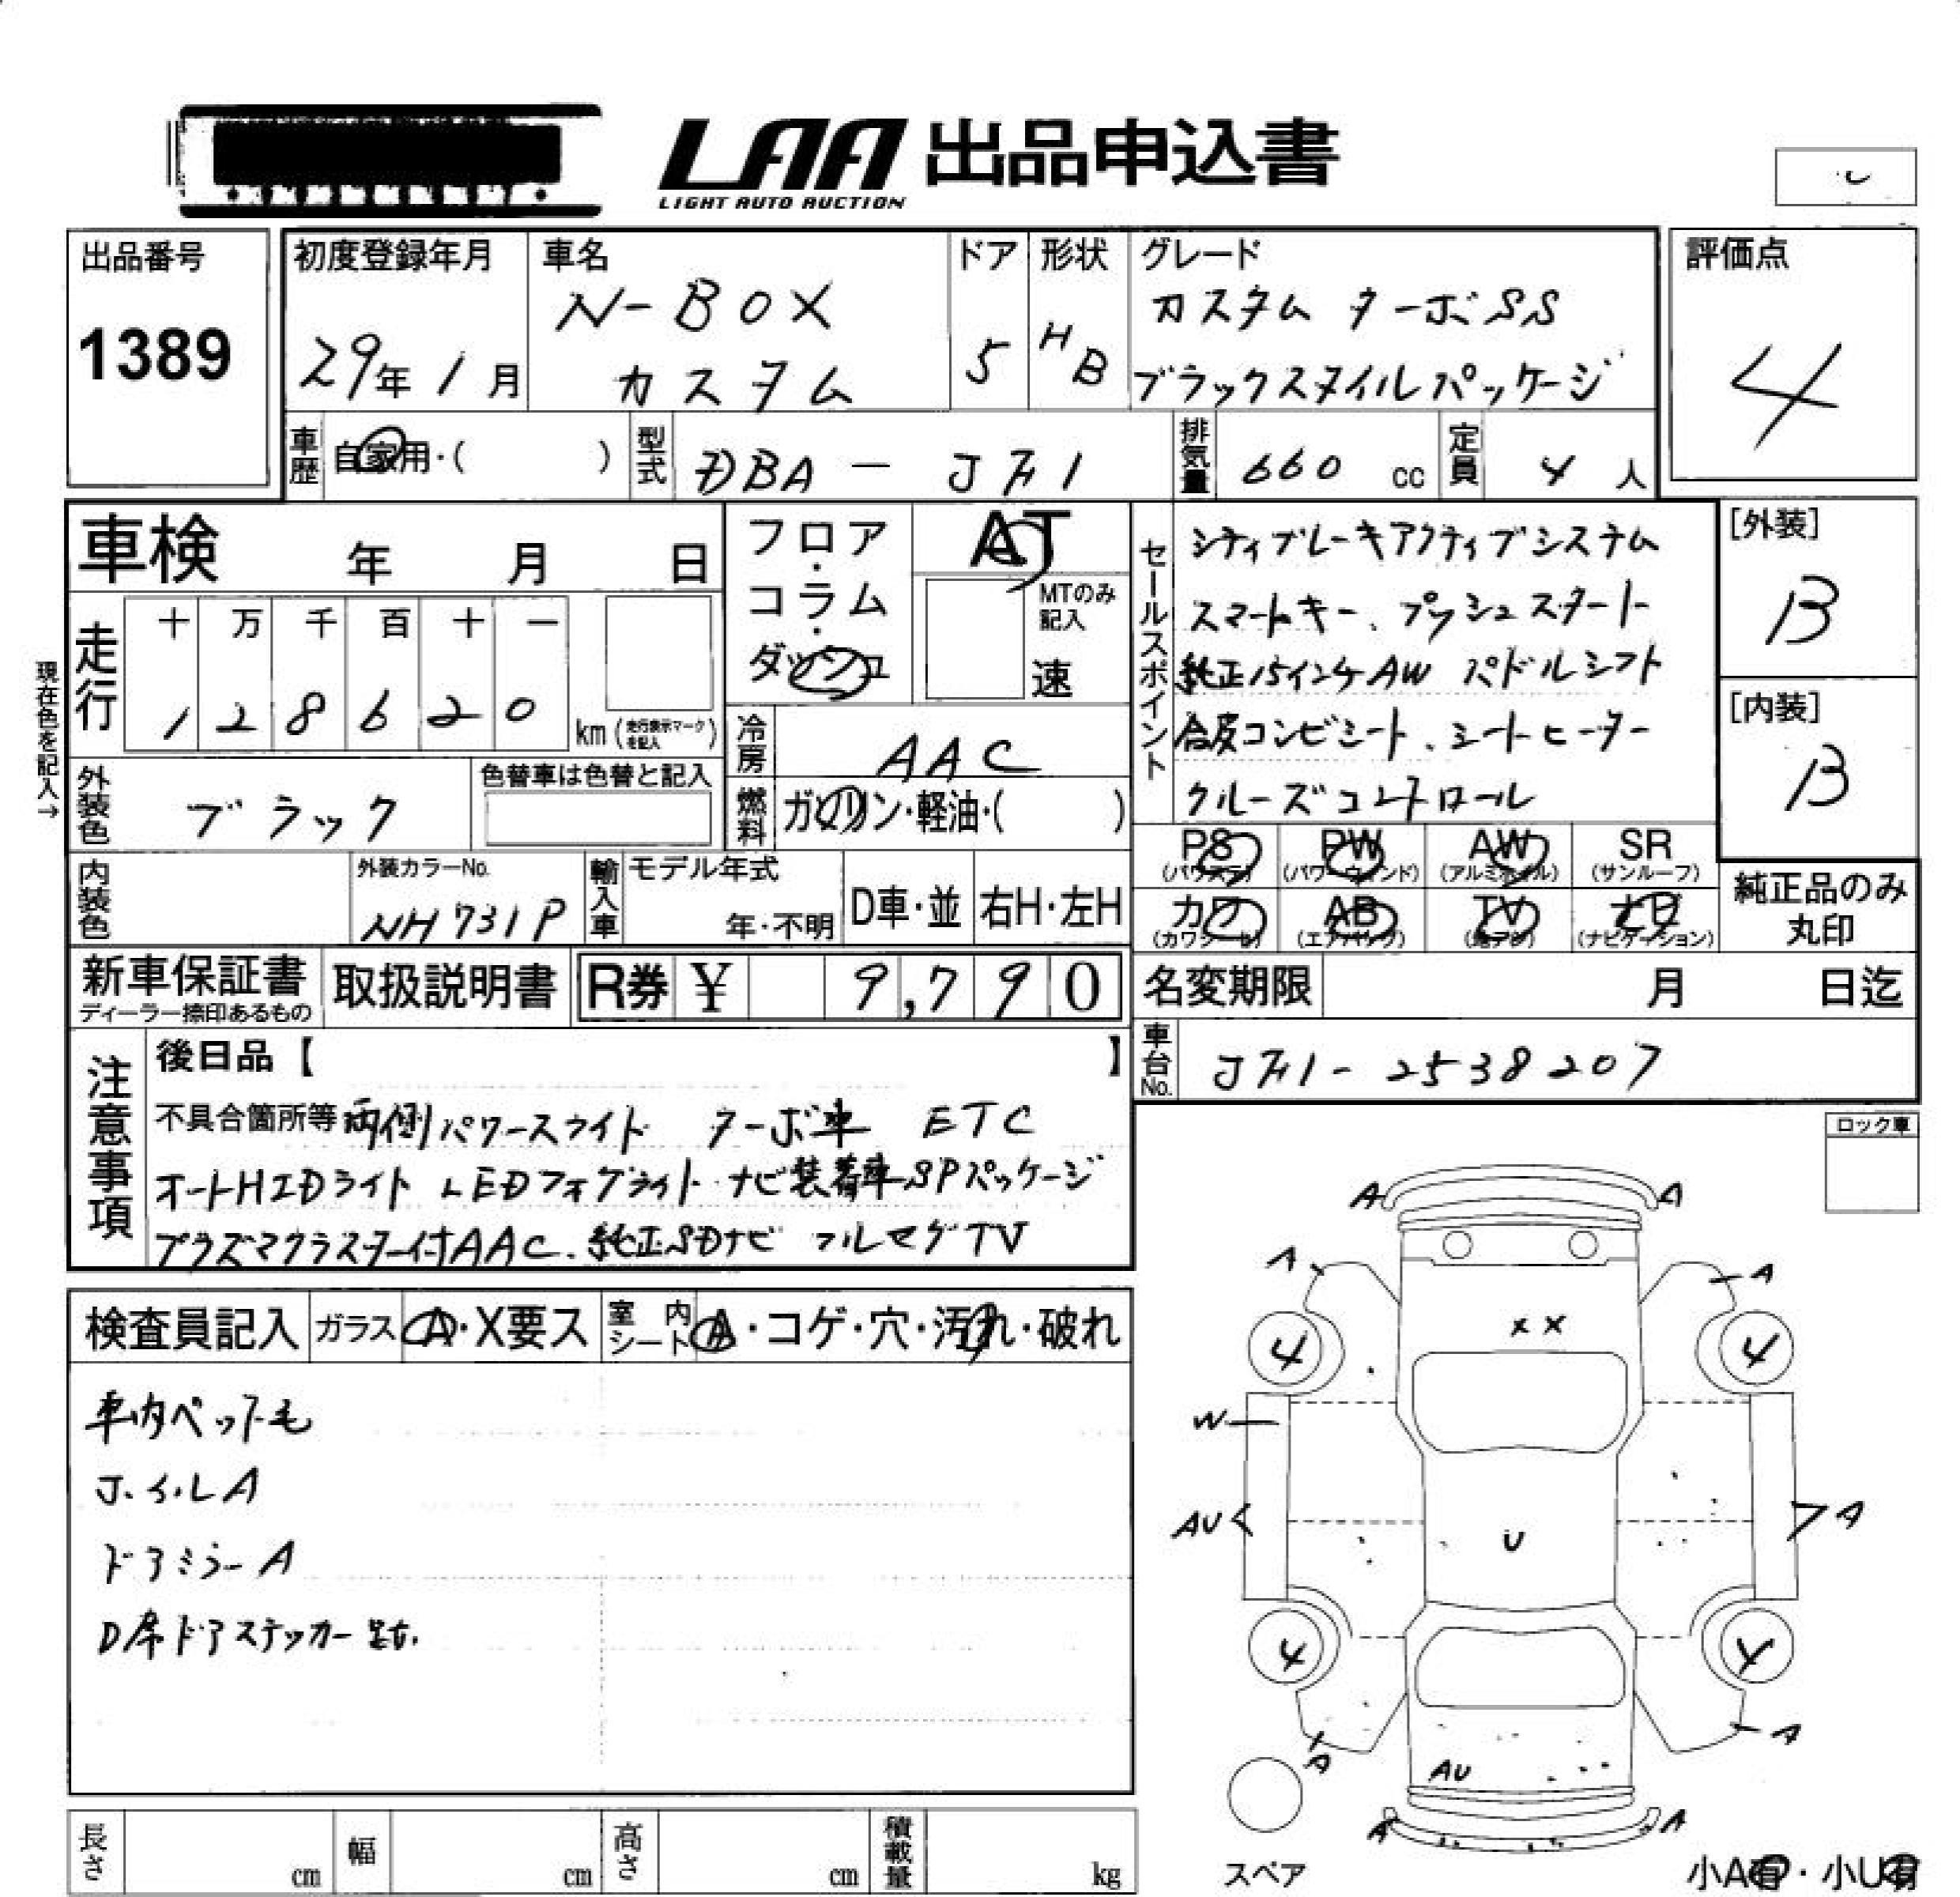 LAA 出品申込書
LIGHT AUTO AUCTION
出品番号
1389
初度登録年月
29年 1月
車名
N-BOX
カスタム
ドア
5
形状
HB
グレード
カスタム ターボSS
ブラックスタイルパッケージ
評価点
4
車歴
自家用・( )
型式
DBA - JF1
排気量
660 cc
定員
4 人
車検 年 月 日
フロア・コラム・ダッシュ
AT
MTのみ記入
速
セールスポイント
シティブレーキアクティブシステム
スマートキー、プッシュスタート
純正15インチAW パドルシフト
合皮コンビシート、シートヒーター
クルーズコントロール
[外装]
B
[内装]
B
現在色を記入→
走行
十 万 千 百 十 一
1 2 8 6 2 0
km (走行表示マークを記入)
冷房
AAC
燃料
ガソリン・軽油・( )
外装色
ブラック
色替車は色替と記入
内装色
外装カラーNo.
NH731P
輸入車
モデル年式
年・不明
D車・並
右H・左H
PS (パワステ)
PW (パワーウィンド)
AW (アルミホイル)
SR (サンルーフ)
カワ (カワシート)
AB (エアバッグ)
TV (地デジ)
ナビ (ナビゲーション)
純正品のみ丸印
新車保証書
ディーラー捺印あるもの
取扱説明書
R券 ¥ 9,790
名変期限 月 日迄
車台No.
JF1-2538207
注意事項
後日品【 】
不具合箇所等 両側パワースライド ターボ車 ETC
オートHIDライト LEDフォグライト ナビ装着車SPパッケージ
プラズマクラスター付AAC、純正SDナビ フルセグTV
ロック車
検査員記入
ガラス A・X要ス
室内シート A・コゲ・穴・汚れ・破れ
車内ペット毛
ドアミラーA
D席ドアステッカー跡
A A
A A
X X
4 4
W
AU A
U
4 4
A A
AU
A A
スペア
小A有・小U有
長さ cm
幅 cm
高さ cm
積載量 kg